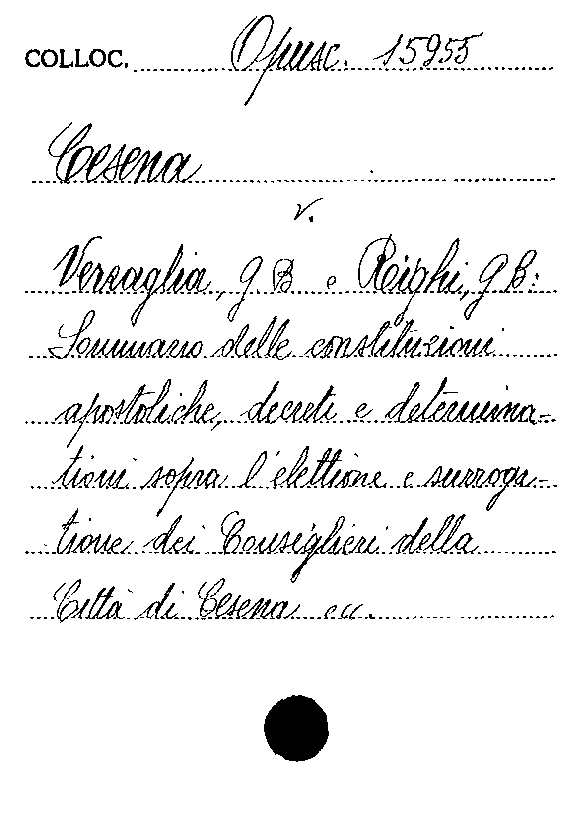 COLLOC. Opusc. 15955
Cesena
v.
Versaglia, G B e Righi, G B:
Sommario delle constituzioni
apostoliche, decreti e determina-
tioni sopra l'elettione e surroga-
tione dei Consiglieri della
Città di Cesena ecc.